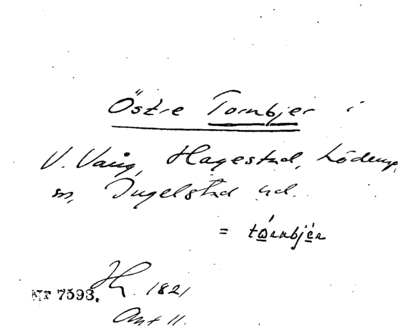 Östre Tornbjer i
V. Vång, Hagestad, Löderups
sn, Ingelstad hd.
= tórnbjér
Nr 7593. 1821
Ant 11.